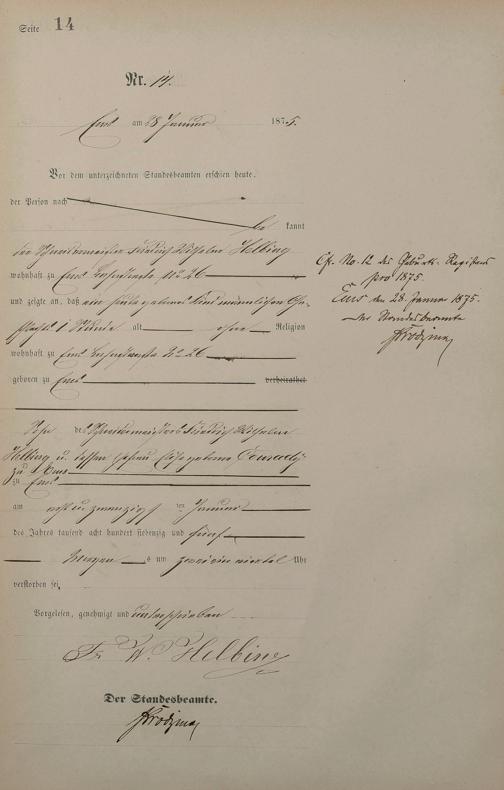 Seite 14
Nr. 14.
Ems am 28 Januar 1875.
Vor dem unterzeichneten Standesbeamten erschien heute,
der Person nach
be kannt
der Schneidermeister Friedrich Wilhelm Helbing
wohnhaft zu Ems No 26
und zeigte an, daß ein geborenes Kind männlichen Ge-
schlechts 1 alt ohne Religion
wohnhaft zu Ems No 26
geboren zu Ems verheirathet
Sohn des Schneidermeisters Friedrich Wilhelm
Helbing u. dessen Ehefrau geborene
zu Ems
zu Ems
am acht u. zwanzigst ten Januar
des Jahres tausend acht hundert siebenzig und fünf
Morgen s um zwei ein viertel Uhr
verstorben sei.
Vorgelesen, genehmigt und unterschrieben
Fr. W. Helbing
Der Standesbeamte.
Cf. No. 12 des Geburts-Registers
pro 1875.
Ems den 28. Januar 1875.
Der Standesbeamte